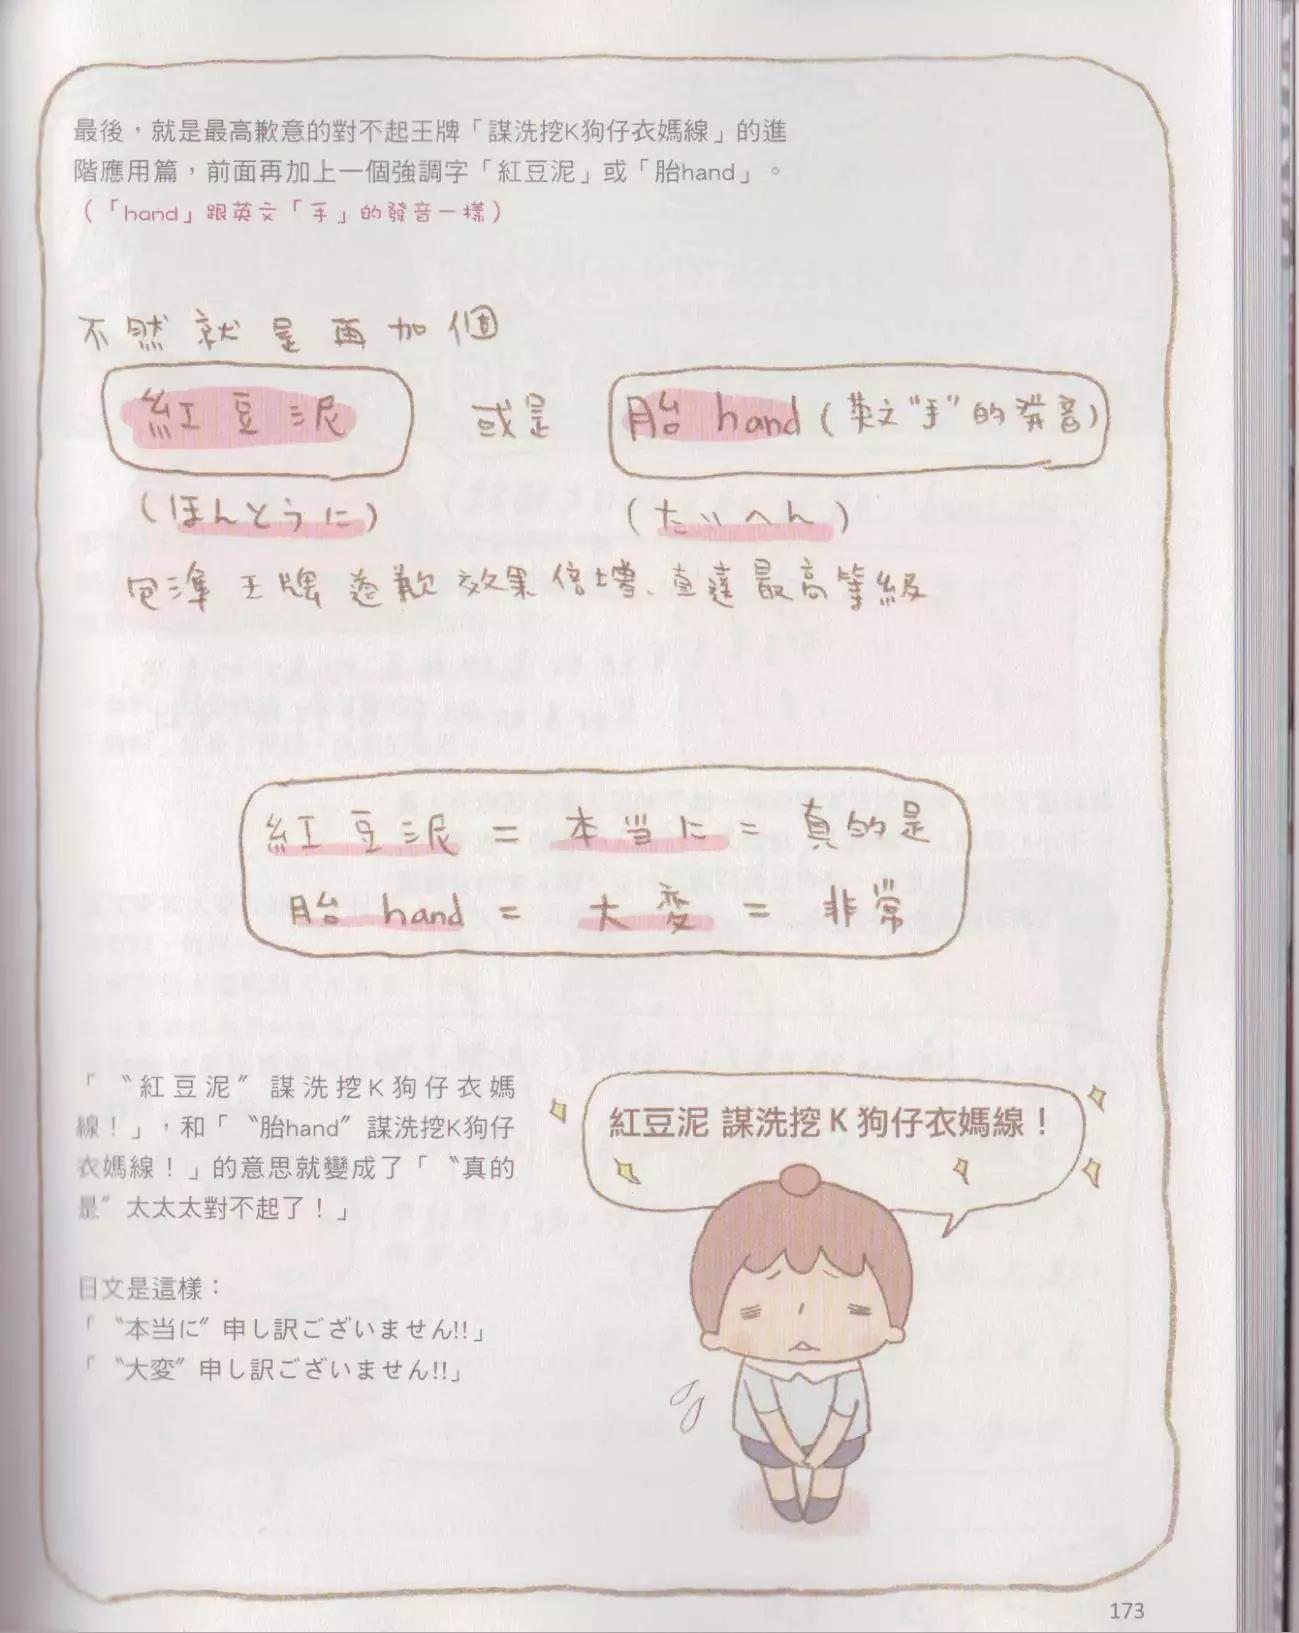 最後，就是最高歉意的對不起王牌「謀洗挖K狗仔衣媽線」的進
階應用篇，前面再加上一個強調字「紅豆泥」或「胎hand」。
（「hand」跟英文「手」的發音一樣）
不然就是再加個
紅豆泥 或是 胎 hand (英文"手"的發音)
(ほんとうに) (たいへん)
包準王牌道歉效果倍增、直達最高等級
紅豆泥 = 本当に = 真的是
胎 hand = 大変 = 非常
「〝紅豆泥〞謀洗挖K狗仔衣媽
線！」，和「〝胎hand〞謀洗挖K狗仔
衣媽線！」的意思就變成了「〝真的
是〞太太太對不起了！」
日文是這樣：
「〝本当に〞申し訳ございません!!」
「〝大変〞申し訳ございません!!」
紅豆泥 謀洗挖K狗仔衣媽線！
173